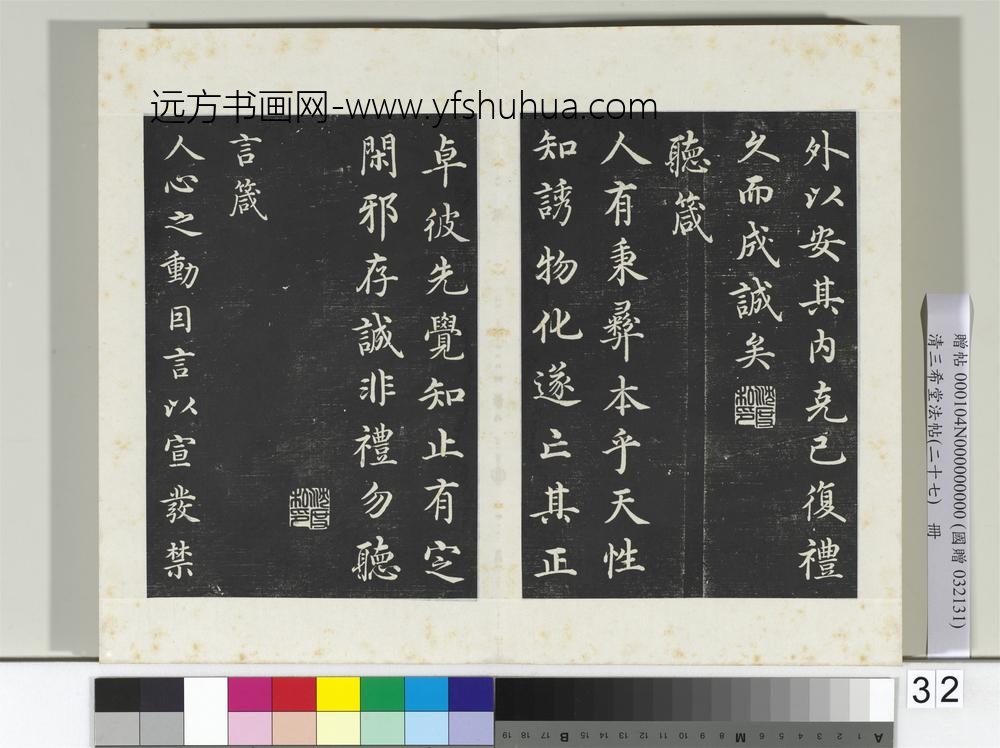 远方书画网-www.yfshuhua.com
外以安其内克己復禮
久而成誠矣
聽箴
人有秉彞本乎天性
知誘物化遂亡其正
卓彼先覺知止有定
閑邪存誠非禮勿聽
言箴
人心之動因言以宣發禁
贈帖 000104N000000000 (國贈 032131)
清三希堂法帖(二十七) 冊
32
B 17 16 15 14 13 12 11 10 9 8 M 6 5 4 3 2 1 A